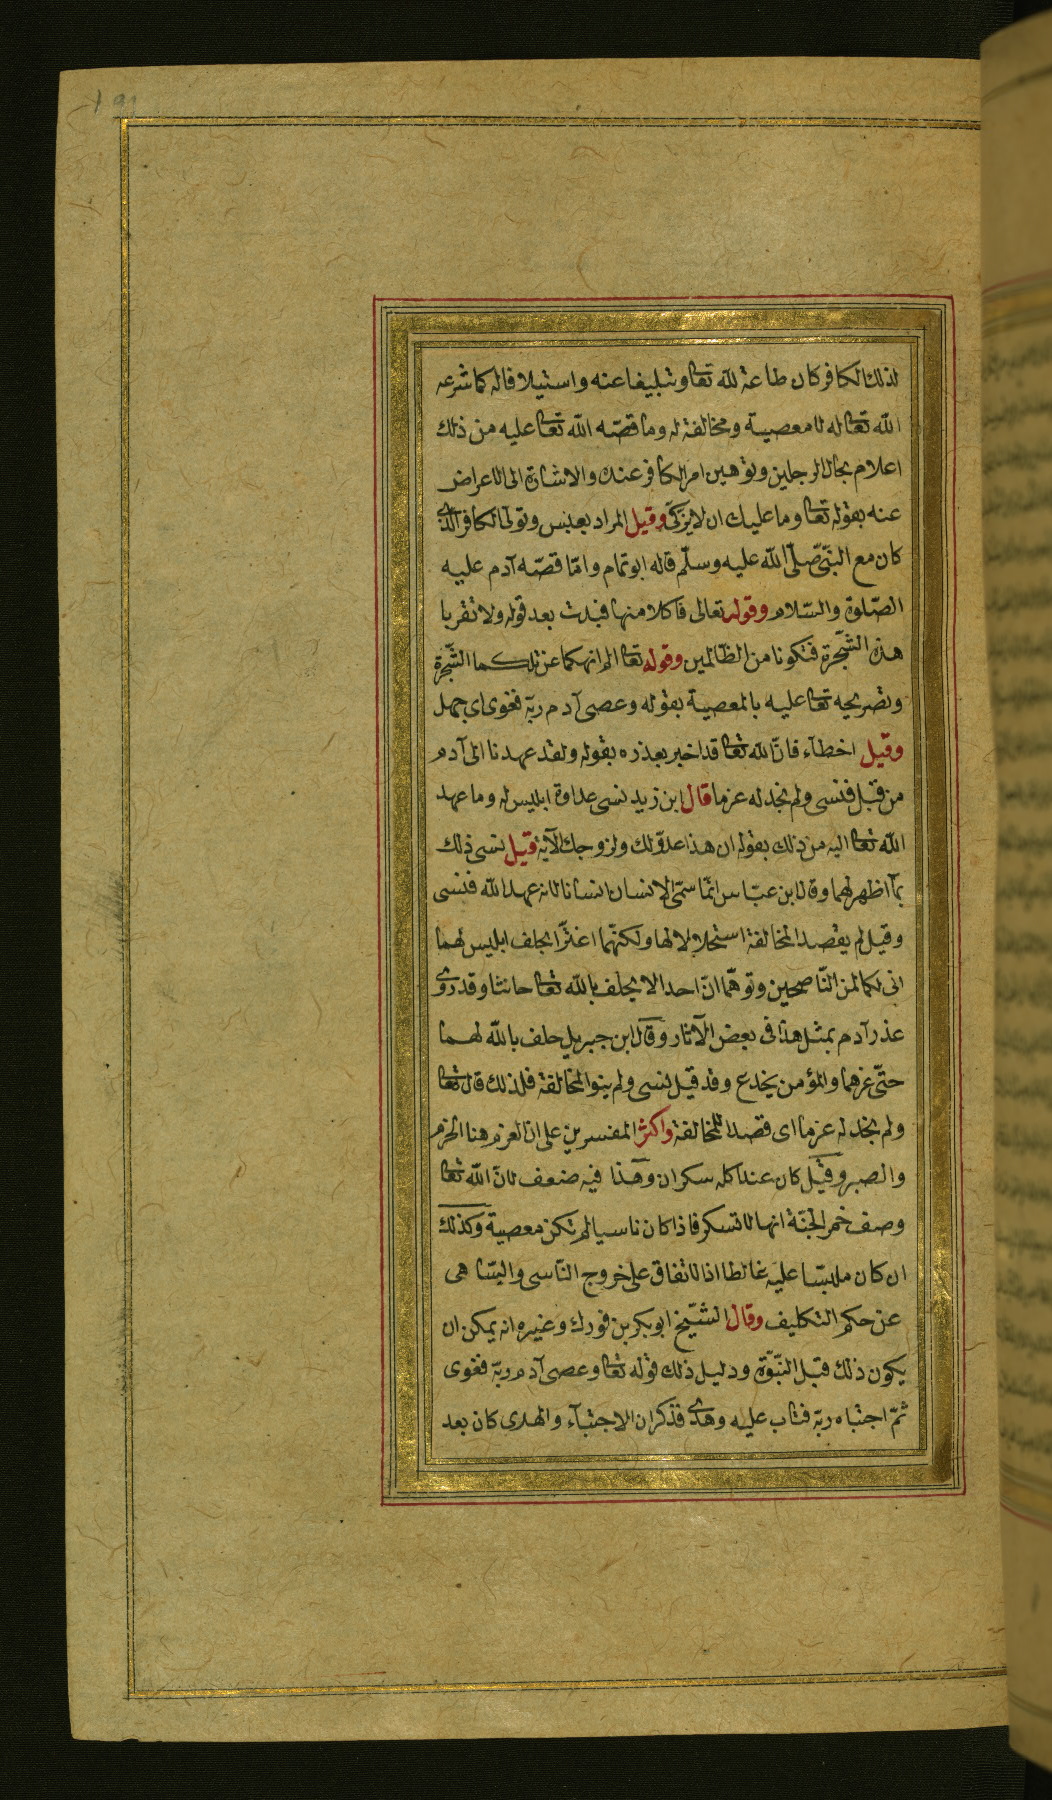 لذلك الكافر كان طاعة لله تعا وتبليغا عنه واستيلافا له كما شرعه
الله تعا له لا معصية ومخالفة له وما قصّه الله تعا عليه من ذلك
اعلام بحال الرجلين وتوهين امر الكافر عندك والاشارة الى الاعراض
عنه بقوله تعا وما عليك ان لا يزكّى وقيل المراد بعبس وتولى الكافر الذى
كان مع النبّى صلّى الله عليه وسلّم قاله ابو تمام وامّا قصّه آدم عليه
الصّلوة والسّلام وقوله تعالى فاكلا منها فبدت بعد قوله ولا تقربا
هذه الشّجرة فتكونا من الظّالمين وقوله تعا الم انهكما عن تلكما الشّجرة
وتصريحه تعا عليه بالمعصية بقوله وعصى آدم ربّه فغوى اى جهل
وقيل اخطآء فانّ الله تعا قد اخبر بعذره بقوله ولقد عهدنا الى آدم
من قبل فنسى ولم نجد له عزما قال ابن زيد نسى عداوة ابليس له وما عهد
الله تعا اليه من ذلك بقوله ان هذا عدوّلك ولزوجك الآية قيل نسى ذلك
بمآ اظهر لهما وقال ابن عبّاس انّما سمّى الانسان انسانا لانه عهد الله فنسى
وقيل لم يقصد المخالفة استحلالا لها ولكنّهما اغترّا بحلف ابليس لهما
انى لكما لمن النّاصحين وتوهّما انّ احدا لا يحلف بالله تعا حانثا وقد روى
عذر آدم بمثل هذا فى بعض الآثار وقال ابن جبريل حلف بالله لهما
حتّى غرهما والمؤمن يخدع وقد قيل نسى ولم ينو المخالفة فلذلك قال تعا
ولم نجد له عزما اى قصدا للمخالفة واكثر المفسرين على ان العزم هنا الحزم
والصبر وقيل كان عند اكله سكران وهذا فيه ضعف لانّ الله تعا
وصف خمر الجنّة انها لا تسكر فاذا كان ناسيا لم تكن معصية وكذلك
ان كان ملبّسا عليه غالطا اذ الاتفاق على خروج النّاسى والسّاهى
عن حكم التكليف وقال الشّيخ ابو بكر بن فورك وغيره انه يمكن ان
يكون ذلك قبل النبّوّة ودليل ذلك قوله تعا وعصى آدم ربّه فغوى
ثمّ اجتباه ربّه فتاب عليه وهدى فذكر ان الاجتبآء والهدى كان بعد